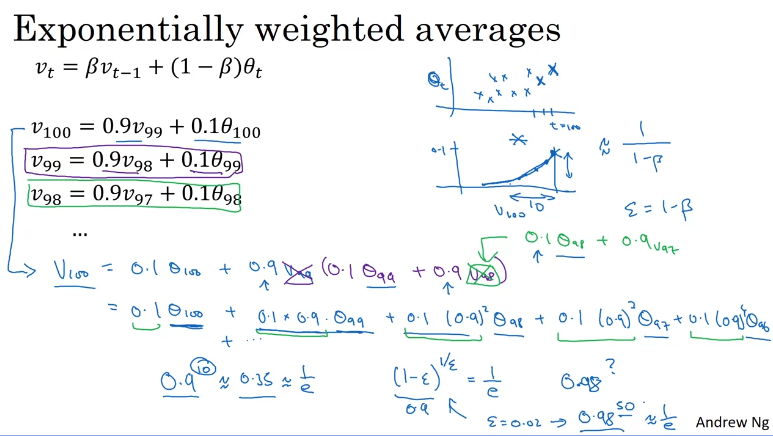 Exponentially weighted averages
v_t = βv_{t−1} + (1 − β)θ_t
θ_t
t=100
v_100 = 0.9v_99 + 0.1θ_100
0.1
≈ 1/(1-β)
v_99 = 0.9v_98 + 0.1θ_99
v_98 = 0.9v_97 + 0.1θ_98
V_100 10
ε = 1-β
...
0.1 θ_98 + 0.9 v_97
V_100 = 0.1 θ_100 + 0.9 v_99 (0.1 θ_99 + 0.9 v_98)
= 0.1 θ_100 + 0.1 × 0.9 · θ_99 + 0.1 (0.9)² θ_98 + 0.1 (0.9)³ θ_97 + 0.1 (0.9)⁴ θ_96
+ ...
0.9^10 ≈ 0.35 ≈ 1/e (1-ε)^{1/ε} = 1/e 0.98^?
0.9
ε = 0.02 → 0.98^50 ≈ 1/e
Andrew Ng